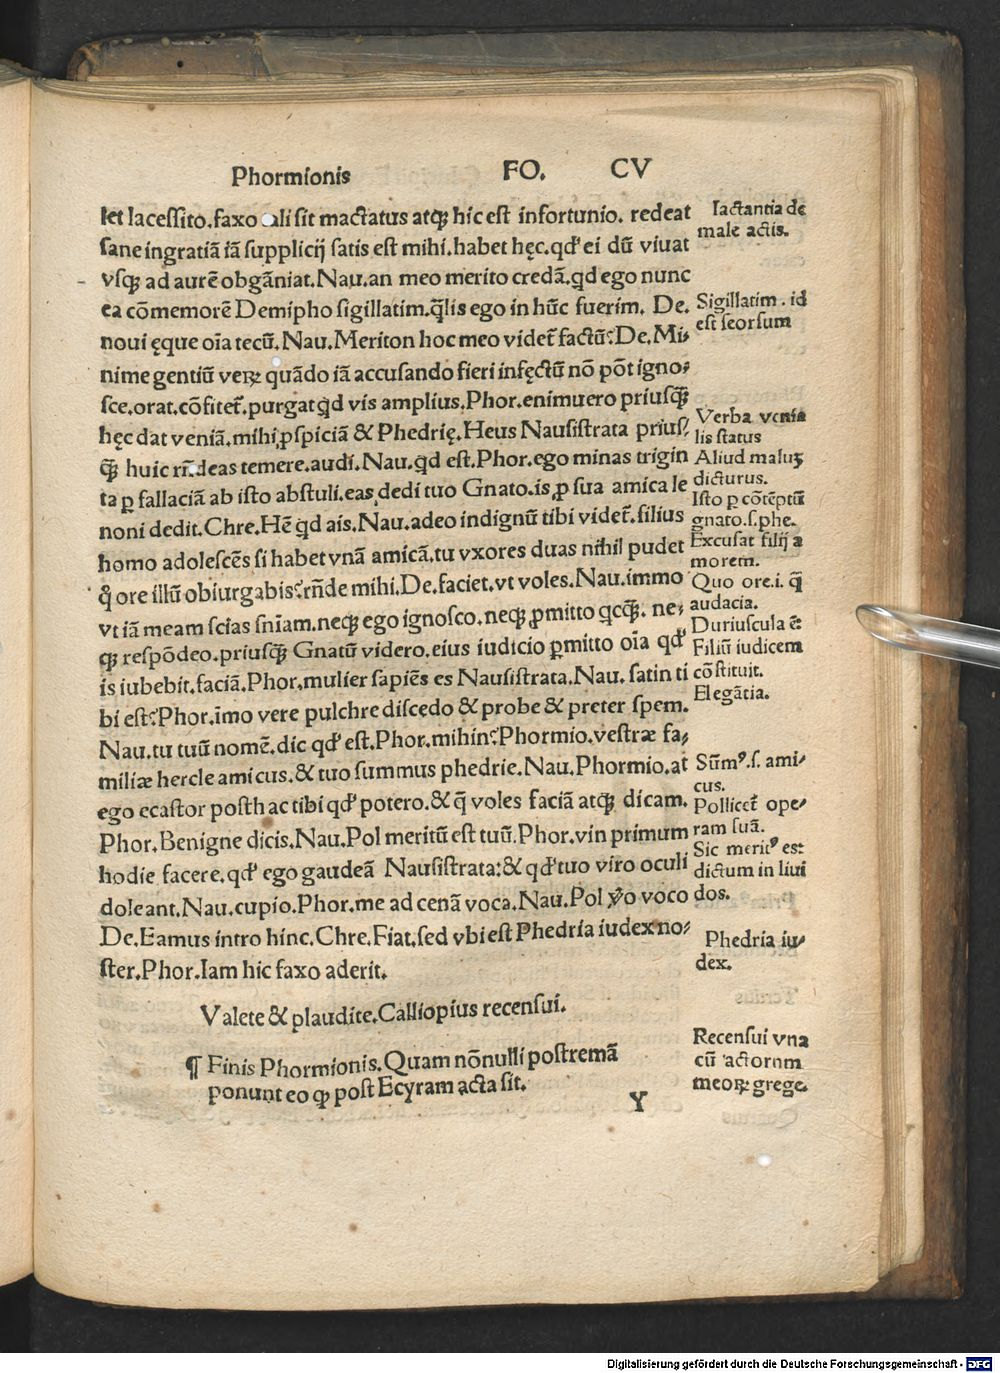 Phormionis FO. CV
let lacessito. faxo ali sit mactatus atqꝫ hic est infortunio. redeat
sane ingratiã iã supplicij satis est mihi. habet hęc. qđ ei dũ viuat
vsqꝫ ad aurẽ obgãniat. Nau. an meo merito credã. qd ego nunc
ea cõmemorẽ Demipho sigillatim. q̃lis ego in hũc fuerim. De.
noui ęque oĩa tecũ. Nau. Meriton hoc meo videt̃ factũ? De. Mi⸗
nime gentiũ veꝝ quãdo iã accusando fieri infęctũ nõ põt igno⸗
sce. orat. cõfitet̃. purgat qd vis amplius. Phor. enimuero priusqꝫ̃
hęc dat veniã. mihi ꝓspiciã & Phedrię. Heus Nausistrata prius⸗
qꝫ̃ huic rñdeas temere. audi. Nau. qd est. Phor. ego minas trigin
ta ꝑ fallaciã ab isto abstuli. eas dedi tuo Gnato. is ꝓ sua amica le
noni dedit. Chre. Hẽ qd ais. Nau. adeo indignũ tibi videt̃. filius
homo adolescẽs si habet vnã amicã. tu vxores duas nihil pudet
q̊ ore illũ obiurgabis? rñde mihi. De. faciet. vt voles. Nau. immo
vt iã meam scias sñiam. neqꝫ ego ignosco. neqꝫ ꝓmitto qcqꝫ̃. ne⸗
qꝫ respõdeo. priusqꝫ̃ Gnatũ videro. eius iudicio ꝑmitto oĩa qđ
is iubebit. faciã. Phor. mulier sapiẽs es Nausistrata. Nau. satin ti
bi est? Phor. imo vere pulchre discedo & probe & preter spem.
Nau. tu tuũ nomẽ. dic qđ est. Phor. mihin? Phormio. vestræ fa⸗
miliæ hercle amicus. & tuo summus phedrie. Nau. Phormio. at
ego ecastor posthac tibi qđ potero. & q̃ voles faciã atqꝫ dicam.
Phor. Benigne dicis. Nau. Pol meritũ est tuũ. Phor. vin primum
hodie facere. qđ ego gaudeã Nausistrata: & qđ tuo viro oculi
doleant. Nau. cupio. Phor. me ad cenã voca. Nau. Pol ỷo voco
De. Eamus intro hinc. Chre. Fiat. sed vbi est Phedria iudex no⸗
ster. Phor. Iam hic faxo aderit.
Valete & plaudite. Calliopius recensui.
¶ Finis Phormionis. Quam nõnulli postremã
ponunt eo qꝫ post Ecyram acta sit.
Y
Iactantia de
male actis.
Sigillatim. id
est seorsum
Verba venia
lis status
Aliud maluꝫ
dicturus.
Isto ꝑ cõtẽptũ
gnato. s. phe.
Excusat filij a
morem.
Quo ore. i. q̃
audacia.
Duriuscula ẽ
Filiũ iudicem
cõstituit.
Elegãtia.
Sũmꝰ. s. ami⸗
cus.
Pollicet̃ ope⸗
ram suã.
Sic meritꝰ es:
dictum in liui
dos.
Phedria iu⸗
dex.
Recensui vna
cũ actorum
meoꝝ grege.
Digitalisierung gefördert durch die Deutsche Forschungsgemeinschaft - DFG